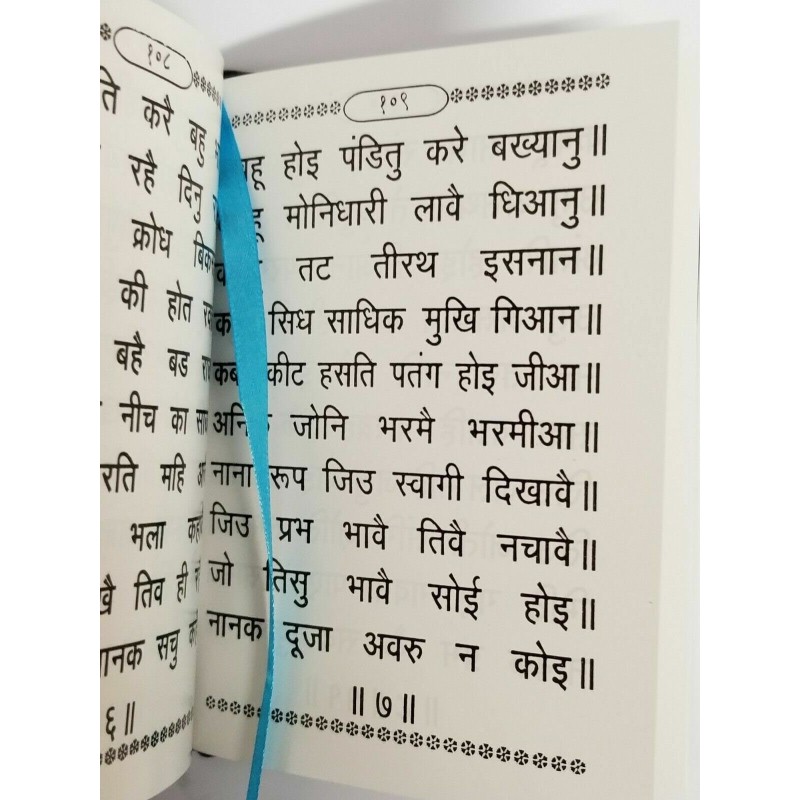 १०८
करै बहु
रहै दिनु
क्रोध
की होत
बहै बड
नीच का
महि
भला
तिव ही
सचु
६॥
१०९
होइ पंडितु करे बख्यानु॥
मोनिधारी लावै धिआनु॥
तट तीरथ इसनान॥
सिध साधिक मुखि गिआन॥
कीट हसति पतंग होइ जीआ॥
अनिक जोनि भरमै भरमीआ॥
नाना रूप जिउ स्वागी दिखावै॥
जिउ प्रभ भावै तिवै नचावै॥
जो तिसु भावै सोई होइ॥
नानक दूजा अवरु न कोइ॥
॥७॥